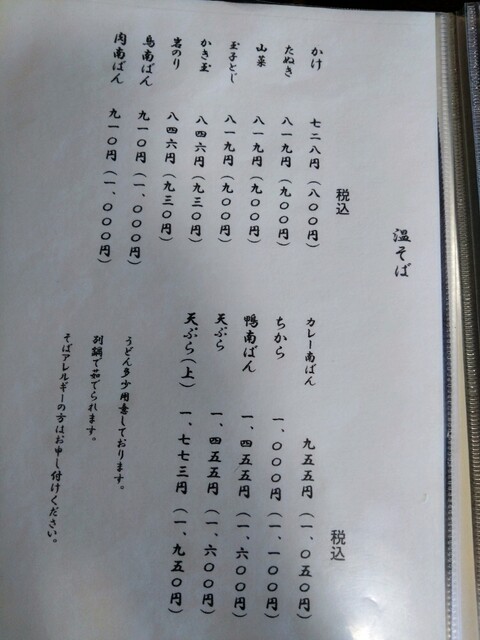 温そば
税込
かけ 七二八円(八〇〇円)
たぬき 八一九円(九〇〇円)
山菜 八一九円(九〇〇円)
玉子とじ 八一九円(九〇〇円)
かき玉 八四六円(九三〇円)
岩のり 八四六円(九三〇円)
鳥南ばん 九一〇円(一、〇〇〇円)
肉南ばん 九一〇円(一、〇〇〇円)
税込
カレー南ばん 九五五円(一、〇五〇円)
ちから 一、〇〇〇円(一、一〇〇円)
鴨南ばん 一、四五五円(一、六〇〇円)
天ぷら 一、四五五円(一、六〇〇円)
天ぷら(上) 一、七七三円(一、九五〇円)
うどん多少用意しております。
別鍋で茹でられます。
そばアレルギーの方はお申し付けください。